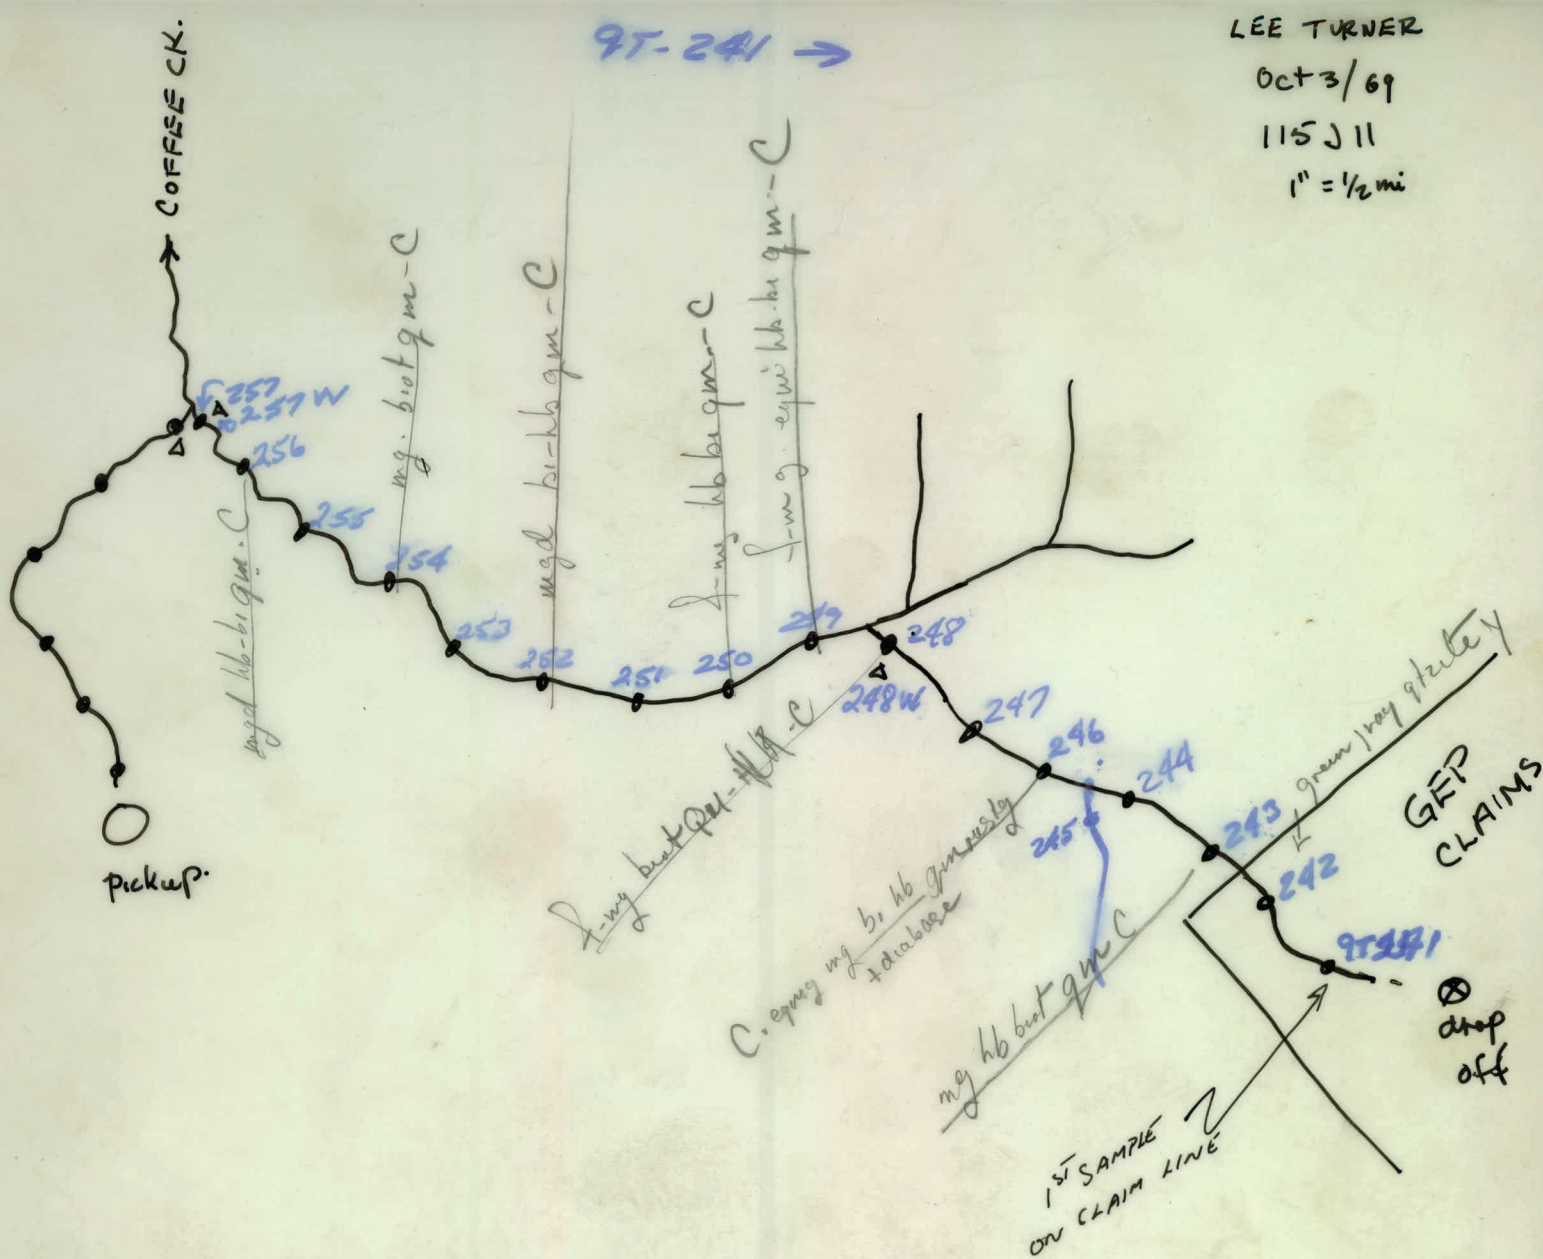 LEE TURNER
Oct 3/69
115 J 11
1" = 1/2 mi
9T-241 →
→ COFFEE CK.
257
257W
256
255
254
253
252
251
250
249
248
248W
247
246
245
244
243
242
9T241
mg. biot qm-C
mgd bi-hb qm-C
f-mg hb bi qm-C
f-m g. equi hb-bi qm-C
mgd hb-bi qm-C
f-mg biot QM -C
C. equig mg bi hb qm, rusty
+ diabase
mg hb biot qm C
green gray qtzite Y
GEP
CLAIMS
drop
off
1ST SAMPLE
ON CLAIM LINE
pickup.